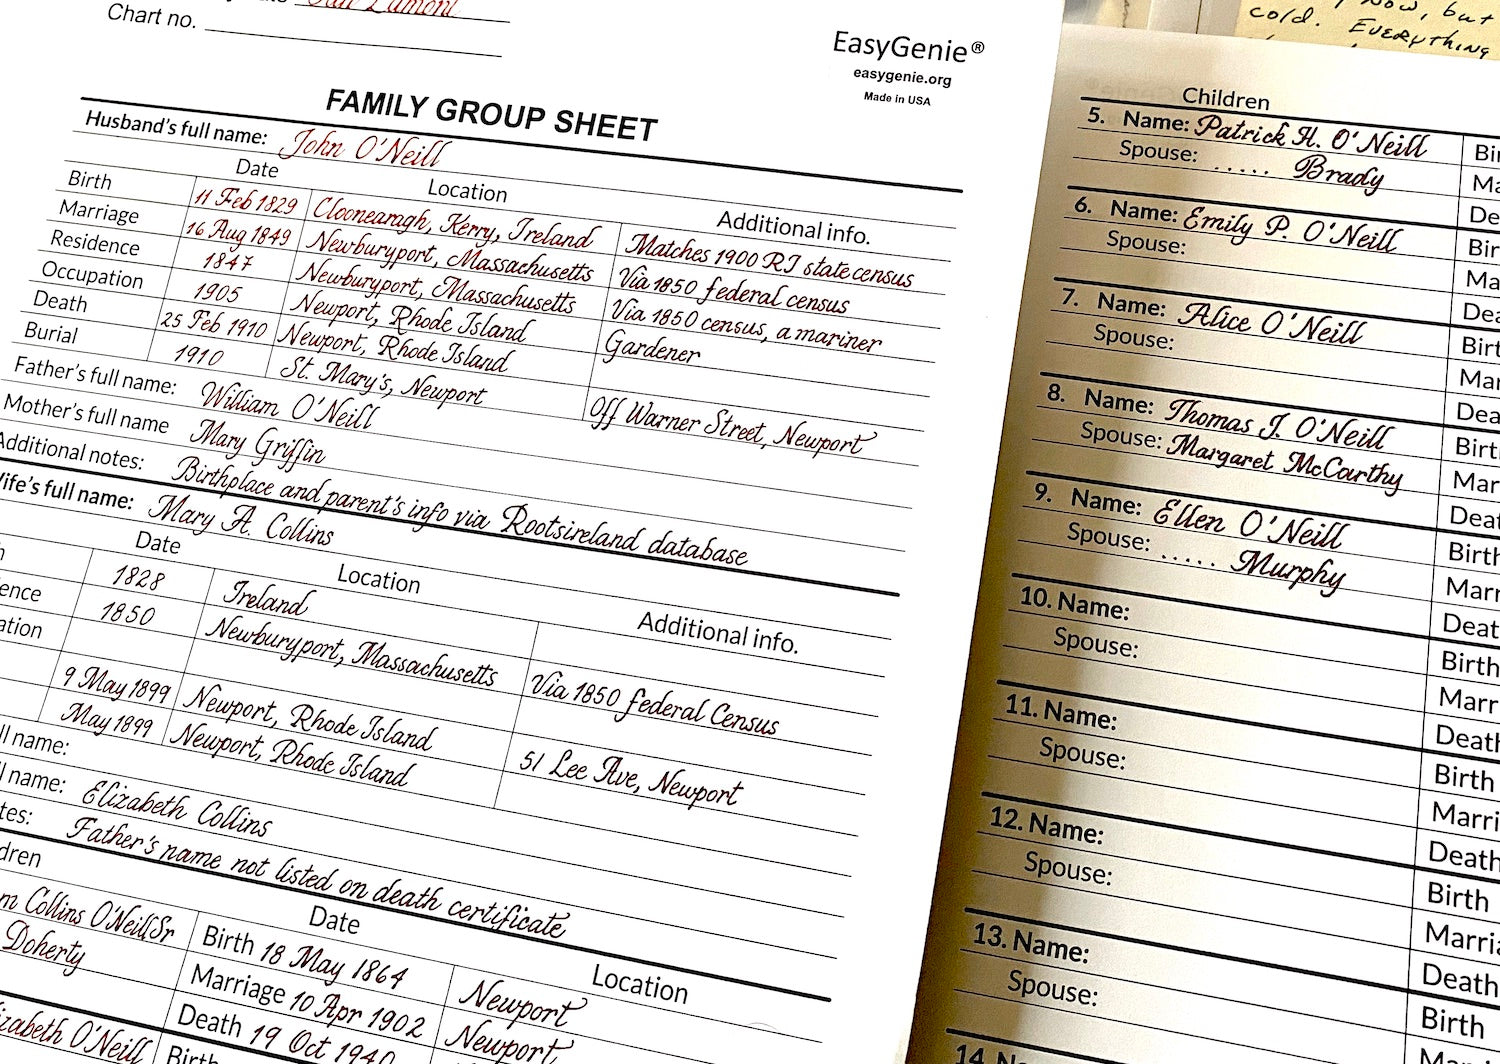 Chart no.
EasyGenie®
easygenie.org
Made in USA
FAMILY GROUP SHEET
Husband's full name: John O'Neill
Date Location Additional info.
Birth 11 Feb 1829 Cloonearagh, Kerry, Ireland Matches 1900 RI state census
Marriage 16 Aug 1849 Newburyport, Massachusetts Via 1850 federal census
Residence 1847 Newburyport, Massachusetts Via 1850 census, a mariner
Occupation 1905 Newport, Rhode Island Gardener
Death 25 Feb 1910 Newport, Rhode Island
Burial 1910 St. Mary's, Newport Off Warner Street, Newport
Father's full name: William O'Neill
Mother's full name Mary Griffin
Additional notes: Birthplace and parent's info via Rootsireland database
ife's full name: Mary A. Collins
Date Location Additional info.
h 1828 Ireland
ence 1850 Newburyport, Massachusetts Via 1850 federal Census
ation
9 May 1899 Newport, Rhode Island
May 1899 Newport, Rhode Island 51 Lee Ave, Newport
ll name:
ll name: Elizabeth Collins
tes: Father's name not listed on death certificate
dren Date Location
m Collins O'Neill Sr Birth 18 May 1864 Newport
Doherty Marriage 10 Apr 1902 Newport
Death 19 Oct 1940 Newport
izabeth O'Neill Birth
now, but
cold. Everything
Children
5. Name: Patrick H. O'Neill Bi
Spouse: ..... Brady Ma
De
6. Name: Emily P. O'Neill Bir
Spouse: Ma
Dea
7. Name: Alice O'Neill Birt
Spouse: Mar
Dea
8. Name: Thomas J. O'Neill Birt
Spouse: Margaret McCarthy Mar
Deat
9. Name: Ellen O'Neill Birth
Spouse: ..... Murphy Marr
Deat
10. Name: Birth
Spouse: Marr
Death
11. Name: Birth
Spouse: Marri
Death
12. Name: Birth
Spouse: Marria
Death
13. Name: Birth
Spouse:
14.